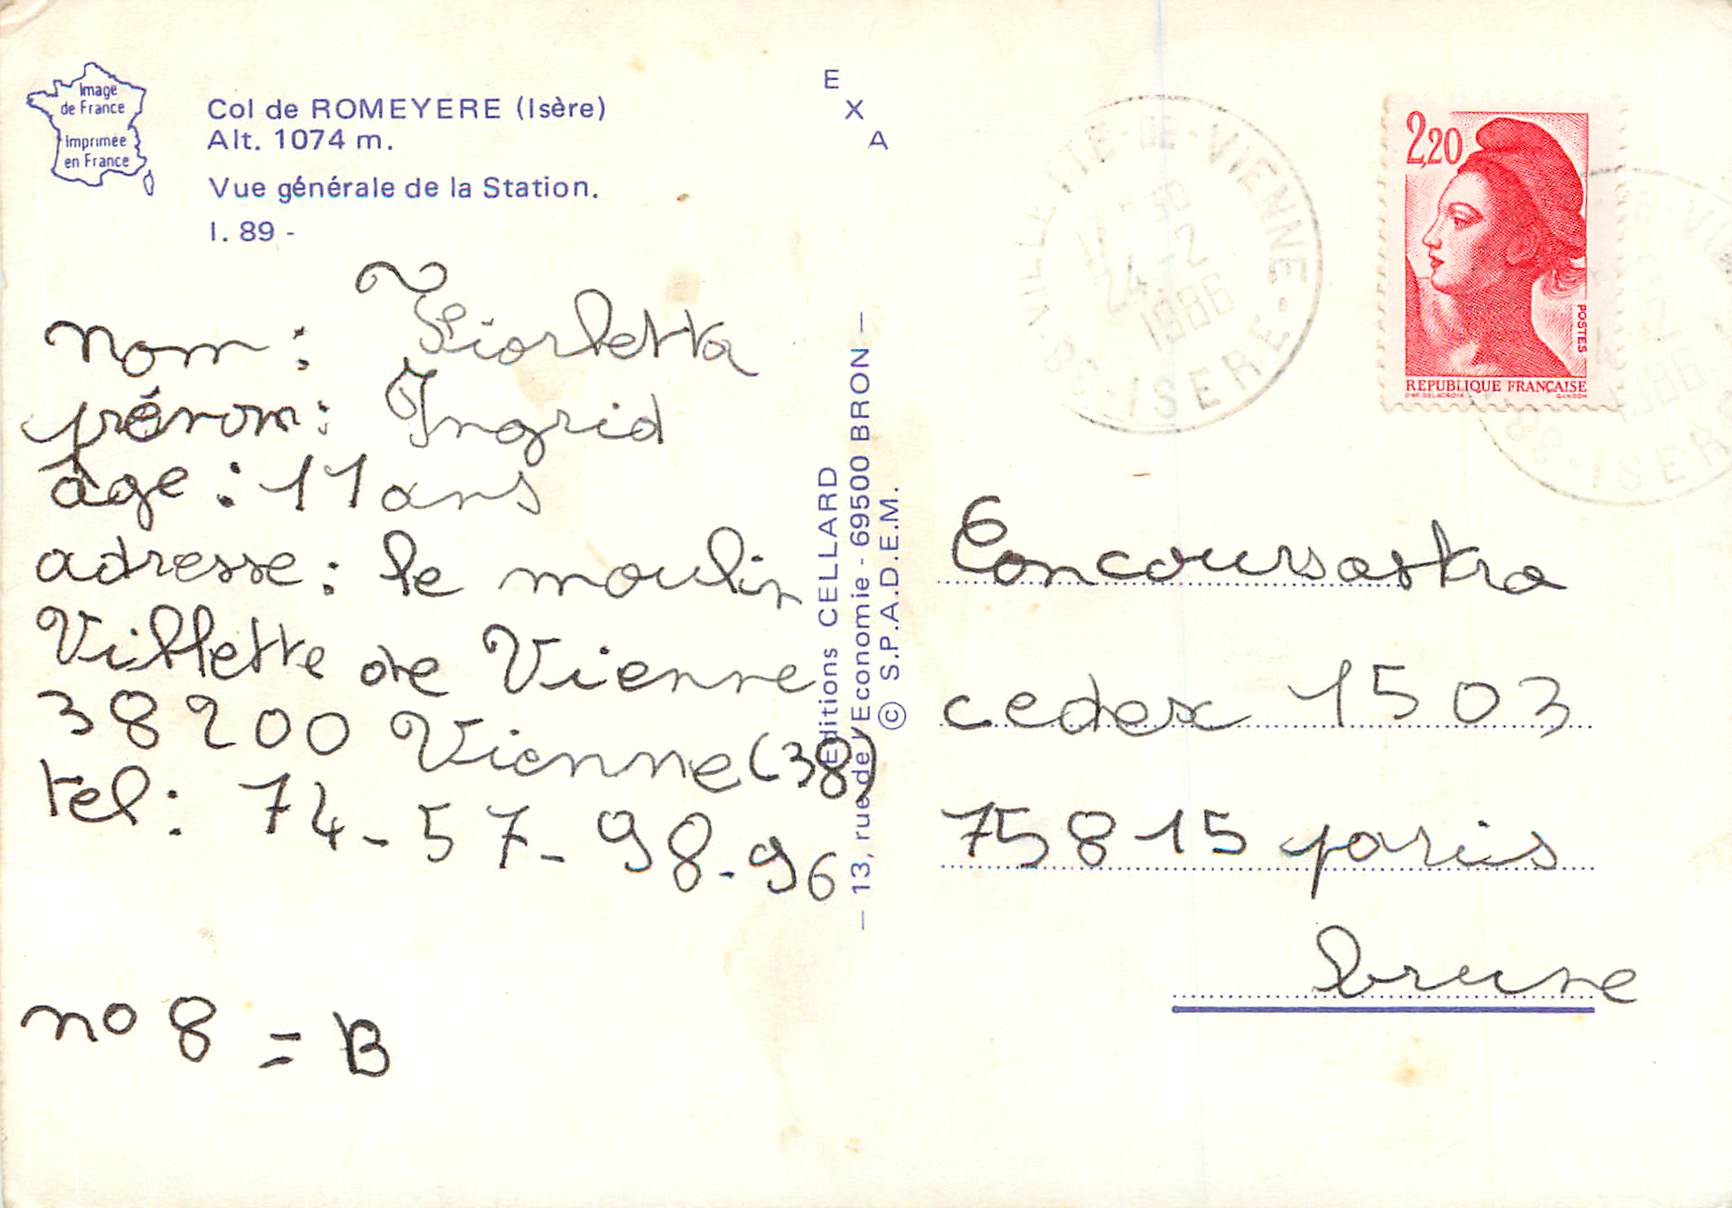 Image
de France
imprimée
en France
Col de ROMEYERE (Isère)
Alt. 1074 m.
Vue générale de la Station.
I. 89 -
E
X
A
nom :
prénom : Ingrid
âge : 11 ans
adresse : le moulin
Villette de Vienne
38200 Vienne (38)
tel : 74-57-98-96
n° 8 = B
Editions CELLARD
— 13, rue de l'Economie - 69500 BRON —
© S.P.A.D.E.M.
VILLETTE-DE-VIENNE
24-2
1986
38-ISERE
2,20
POSTES
REPUBLIQUE FRANÇAISE
D'AP. DELACROIX GANDON
2
1986
38-ISER
Concours astra
cedex 1503
75815 paris
brune